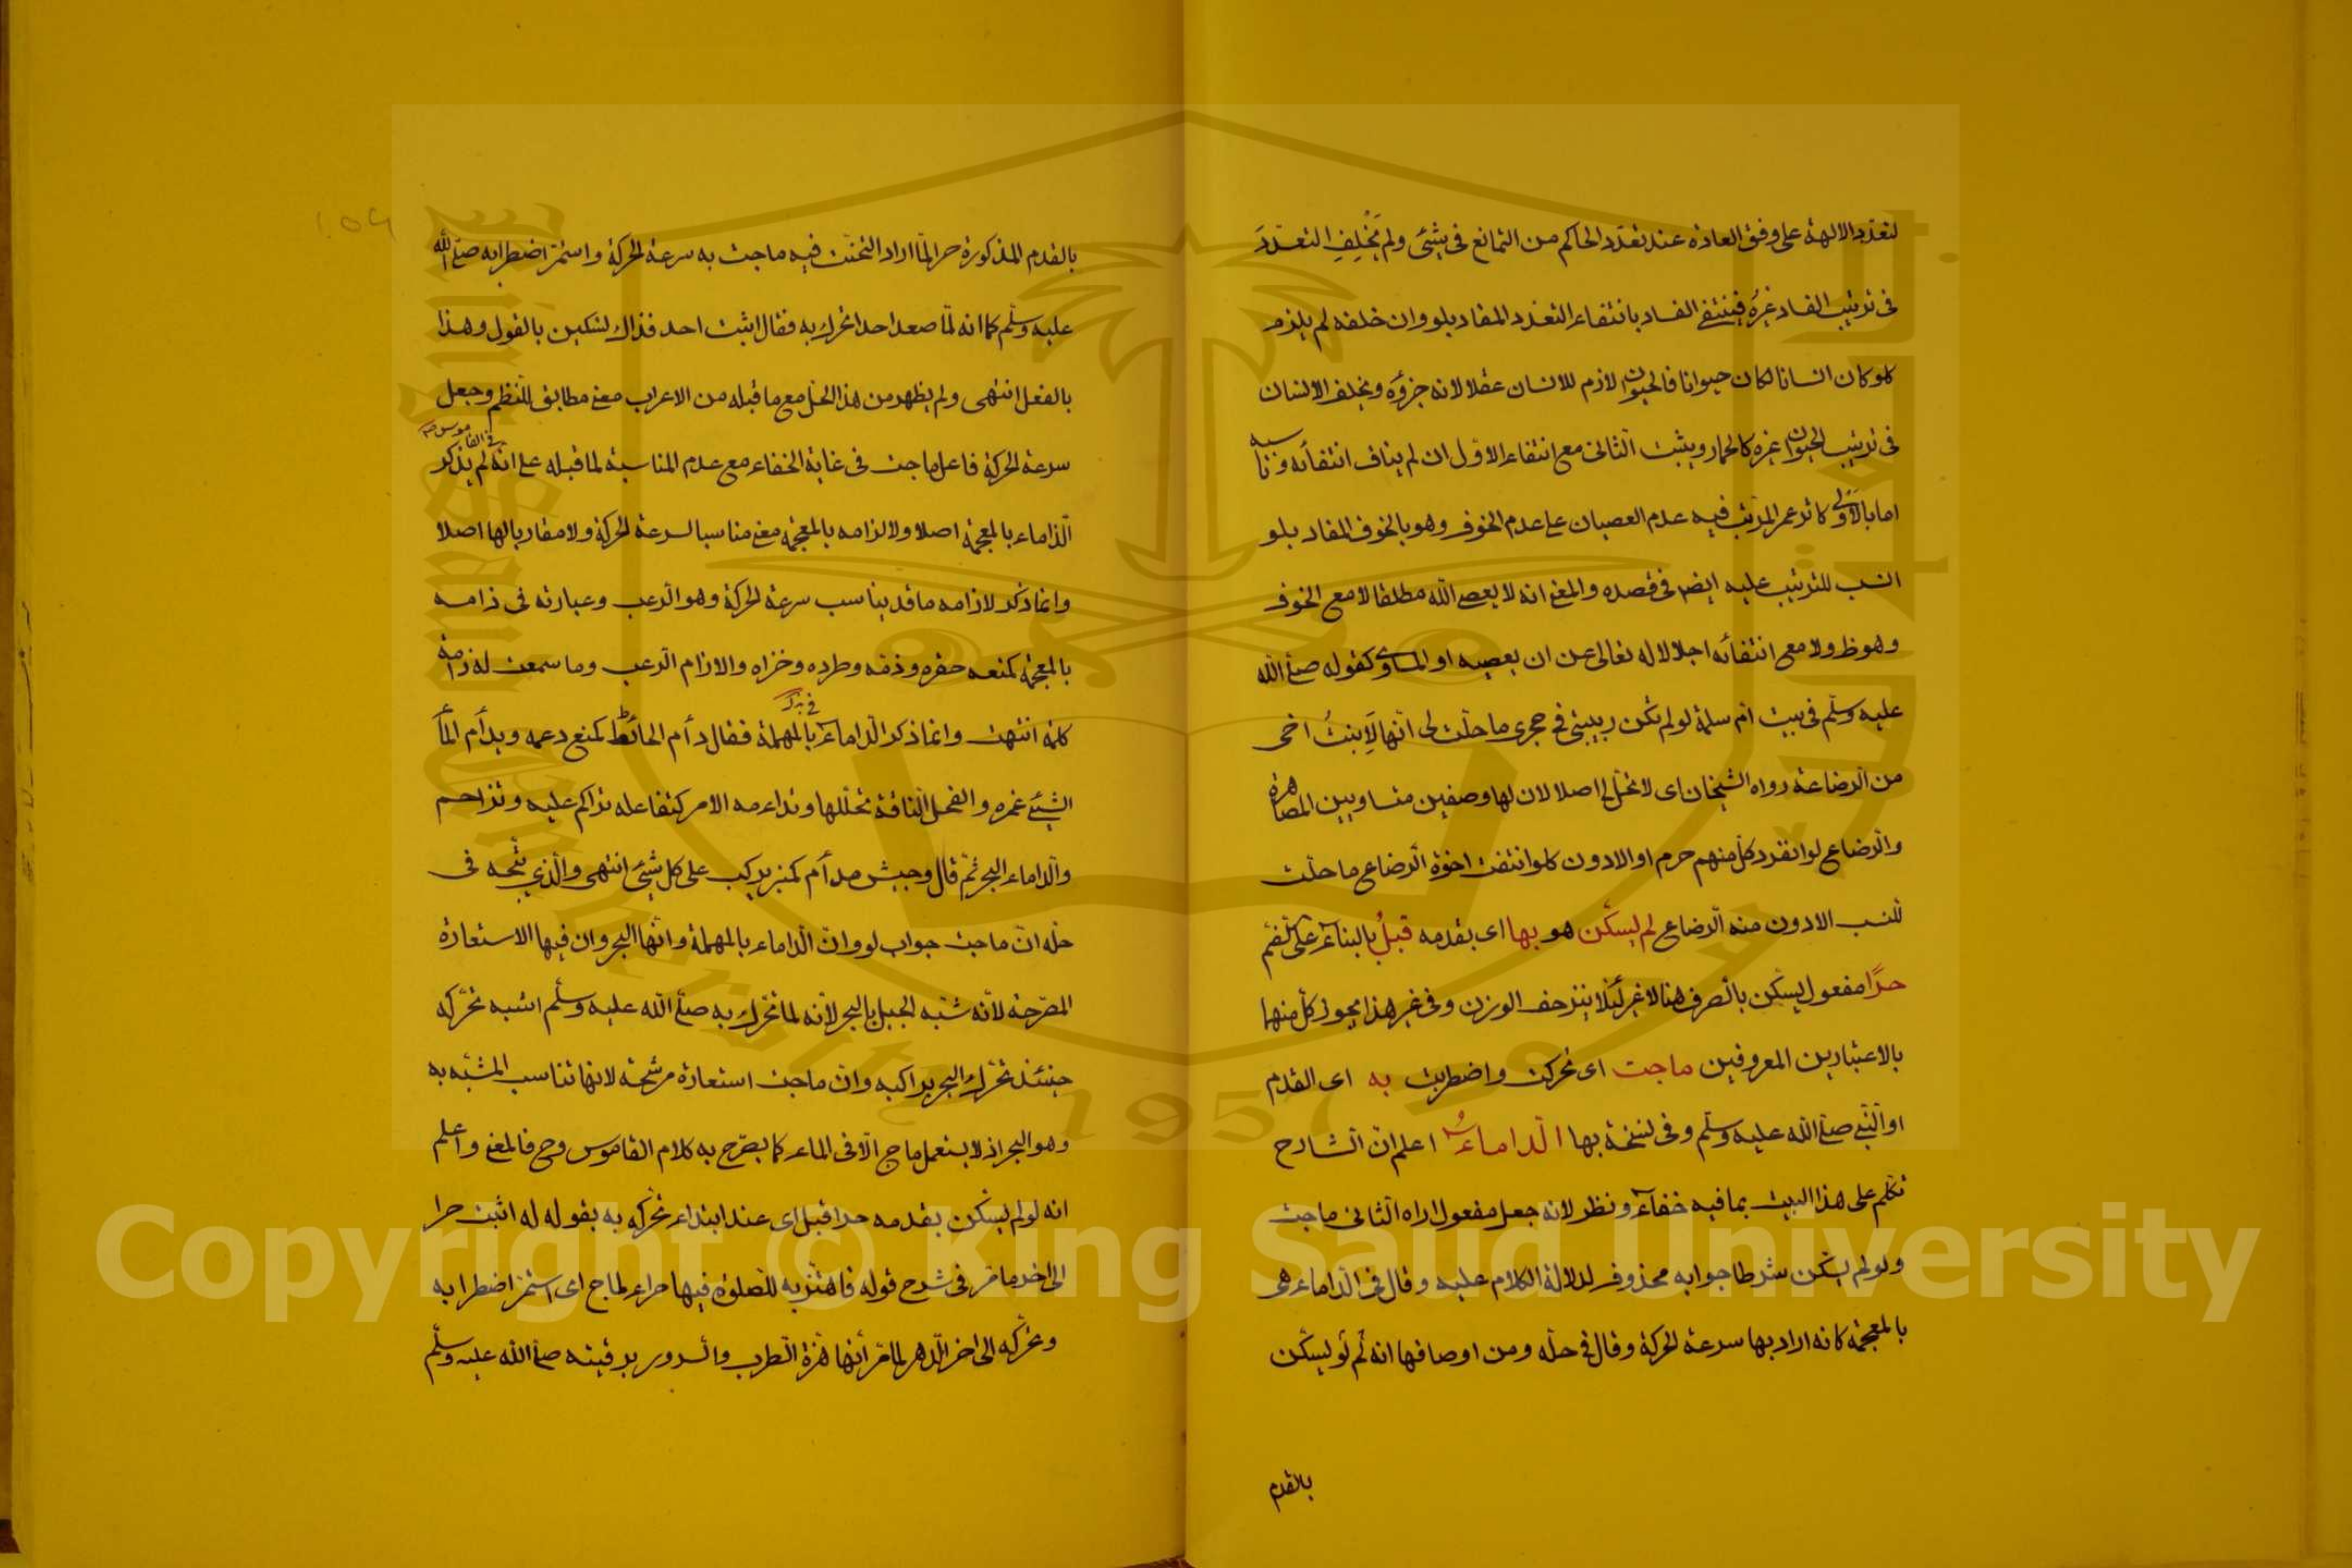 لتعدد الالهة على وفق العادة عند تعدد الحاكم من التمانع فى شيئ ولم يَخْلِفِ التعدّدَ
فى ترتيب الفساد غيرُه فينتفى الفساد بانتفاء التعدد المفاد بلو وان خلفه لم يلزم
كلو كان انسانا لكان حيوانا فالحيوان لازم للانسان عقلا لانه جزؤه ويخلف الانسان
فى ترتيب الحيوان غيره كالحمار ويثبت الثانى مع انتفاء الاول ان لم يناف انتفائه وناسبه
اما بالاولى كاثر عمر المرتب فيه عدم العصيان على عدم الخوف وهو بالخوف المفاد بلو
انسب للترتيب عليه ايض فى قصده والمعنى انه لا يعصى الله مطلقا لا مع الخوف
وهو ظ ولا مع انتفائه اجلالا له تعالى عن ان يعصيه او المساوى كقوله صلى الله
عليه وسلّم فى بيت ام سلمة لو لم تكن ربيبتى فى حجرى ما حلّت لى انّها لَابنةُ اخى
من الرضاعة رواه الشيخان اى لا تحل لى اصلا لان لها وصفين متساويين المصاهرة
والرضاع لو انفرد كل منهم حرم او الادون كلو انتفت اخوة الرضاع ما حلّت
للنسب الادون منه الرضاع لم يسكّن هو بها اى بقدمه قبلُ بالبناء على الضم
حرًا مفعول يسكّن بالصرف هنا لا غير لئلا ينزحف الوزن وفى غير هذا يجوز كل منهما
بالاعتبارين المعروفين ماجت اى تحركت واضطربت به اى القدم
او النبى صلى الله عليه وسلّم وفى نسخة بها الداماءُ اعلم انّ الشارح
تكلم على هذا البيت بما فيه خفاء ونظر لانه جعل مفعول اراه الثانى ماجت
ولو لم يسكن شرطا جوابه محذوف لدلالة الكلام عليه وقال فى الذاماء هى
بالمعجمة كانه اراد بها سرعة الحركة وقال فى حلّه ومن اوصافها انه لم لو يسكّن
بالقدم
بالقدم المذكورة حرا لمّا اراد التحنّث فيه ماجت به سرعة الحركة واستمرّ اضطرابه صلى الله
عليه وسلّم كما انه لمّا صعد احدا تحرك به فقال اثبت احد فذاك تسكين بالقول وهذا
بالفعل انتهى ولم يظهر من هذا الحل مع ما قبله من الاعراب معنى مطابق للنظم وجعل
سرعة الحركة فاعل ماجت فى غاية الخفاء مع عدم المناسبة لما قبله على انه لم يذكر
فى القاموس صح
الذاماء بالمعجمة اصلا ولا لزامه بالمعجمة معنى مناسبا لسرعة الحركة ولا مقاربا لها اصلا
وانما ذكر لازامه ما قد يناسب سرعة الحركة وهو الرعب وعبارته فى ذامه
بالمعجمة كمنعه حقره وذمّه وطرده وخزاه والاذام الرعب وما سمعت له ذامة
كلمة انتهت وانما ذكر الداماء بالمهملة فقال دأم الحائط كمنع دعمه وبدأم الماء
الشيئ غمره والفحل الناقة تجللها وتداءمه الامر كتفاعله تراكم عليه وتزاحم
والداماء البحر ثمّ قال وجيش مدأم كمنبر يركب على كل شيئ انتهى والذى يتّجه فى
حلّه انّ ماجت جواب لو وانّ الداماء بالمهملة وانّها البحر وان فيها الاستعارة
المصرّحة لانّه شبّه الجبل بالبحر لانّه لما تحرّك به صلى الله عليه وسلّم اشبه تحرّكه
حينئذ تحرّك البحر براكبه وانّ ماجت استعارة مرشّحة لانها تناسب المشبّه به
وهو البحر اذ لا يستعمل ماج الّا فى الماء كما يصرّح به كلام القاموس وح فالمعنى واعلم
انه لو لم يسكّن بقدمه حرا قبل اى عند ابتداء تحرّكه به بقوله له اثبت حرا
الى اخر ما مر فى شرح قوله فاهتزّ به للصلوة فيها حراء لماج اى استمرّ اضطرابه
وتحرّكه الى اخر الدهر لما مرّ أنّها هزة الطرب والسرور برقيته صلى الله عليه وسلّم
Copyright © King Saud University
1957